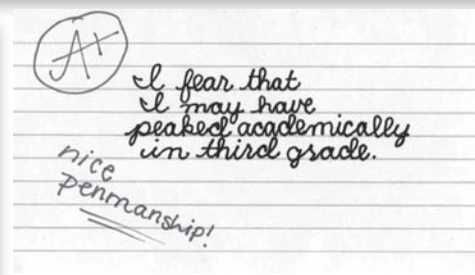 A+
I fear that
I may have
peaked academically
in third grade.
nice
penmanship!